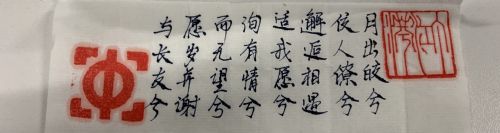 月出皎兮
佼人僚兮
邂逅相遇
适我愿兮
洵有情兮
而无望兮
愿岁并谢
与长友兮